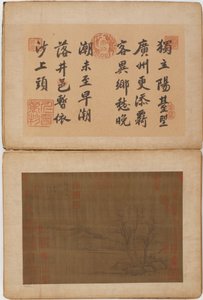 獨立陽臺望
廣州更添羈
客異鄉愁晚
潮未至早潮
落井邑暫依
沙上頭